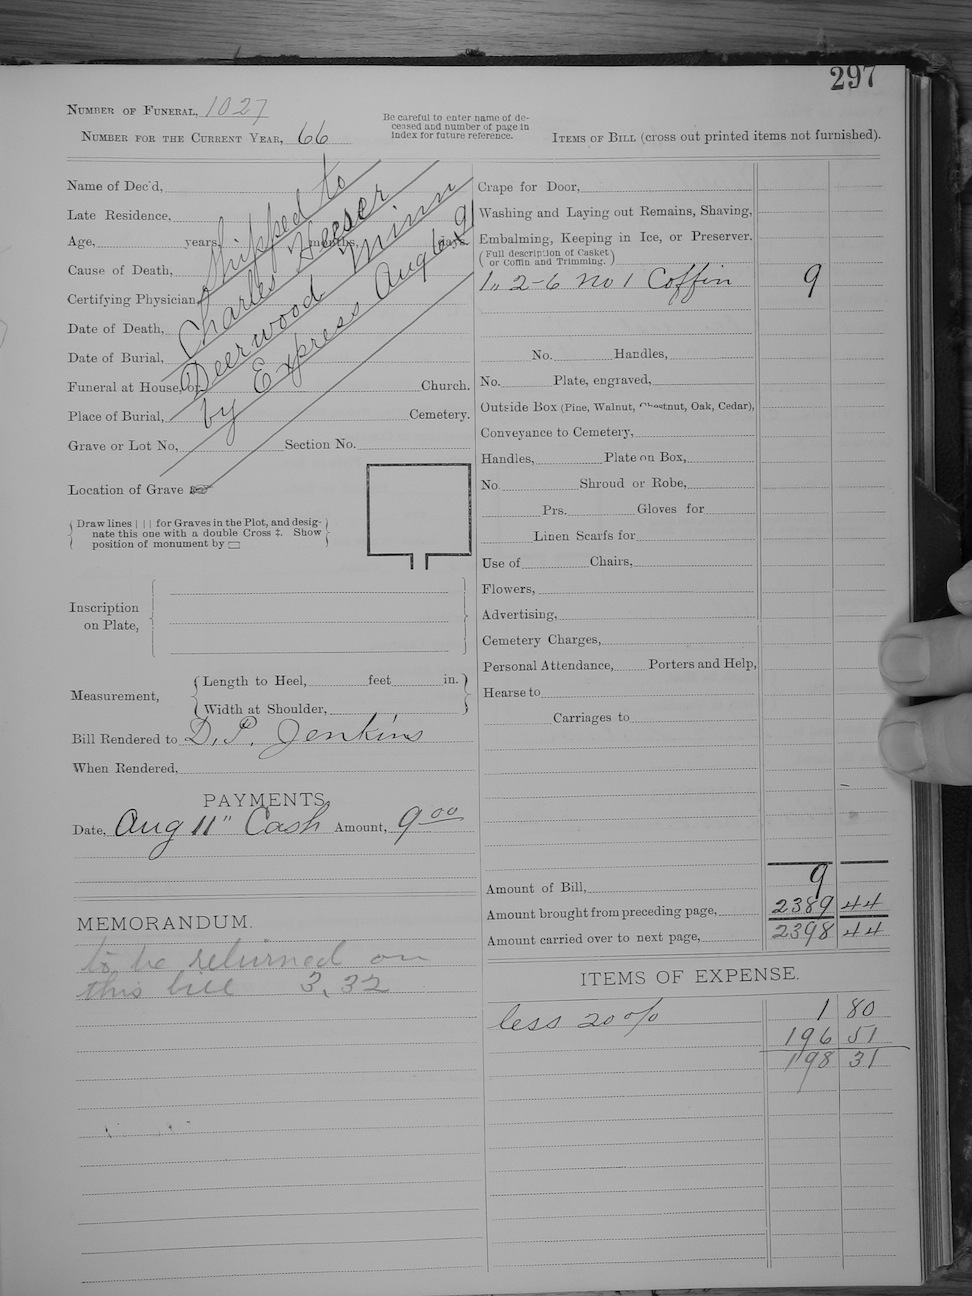 297
NUMBER OF FUNERAL, 1027
NUMBER FOR THE CURRENT YEAR, 66
Be careful to enter name of de-
ceased and number of page in
index for future reference.
ITEMS OF BILL (cross out printed items not furnished).
Name of Dec'd,
Late Residence,
Age, years, months, days.
Cause of Death,
Certifying Physician,
Date of Death,
Date of Burial,
Funeral at House, or Church.
Place of Burial, Cemetery.
Grave or Lot No, Section No.
Shipped to
Charles Heeser
Deerwood Minn
by Express Aug 6, 91
Location of Grave
Draw lines | | | for Graves in the Plot, and desig-
nate this one with a double Cross ‡. Show
position of monument by ▭
Inscription
on Plate,
Measurement,
Length to Heel, feet in.
Width at Shoulder,
Bill Rendered to D. P. Jenkins
When Rendered,
PAYMENTS.
Date, Aug 11" Cash Amount, 9 00
MEMORANDUM.
to be returned on
this bill 3.32
Crape for Door,
Washing and Laying out Remains, Shaving,
Embalming, Keeping in Ice, or Preserver.
(Full description of Casket
or Coffin and Trimming.)
1,, 2-6 no 1 Coffin 9
No. Handles,
No. Plate, engraved,
Outside Box (Pine, Walnut, Chestnut, Oak, Cedar),
Conveyance to Cemetery,
Handles, Plate on Box,
No. Shroud or Robe,
Prs. Gloves for
Linen Scarfs for
Use of Chairs,
Flowers,
Advertising,
Cemetery Charges,
Personal Attendance, Porters and Help,
Hearse to
Carriages to
Amount of Bill, 9
Amount brought from preceding page, 2389 44
Amount carried over to next page, 2398 44
ITEMS OF EXPENSE.
less 20% 1 80
196 51
198 31